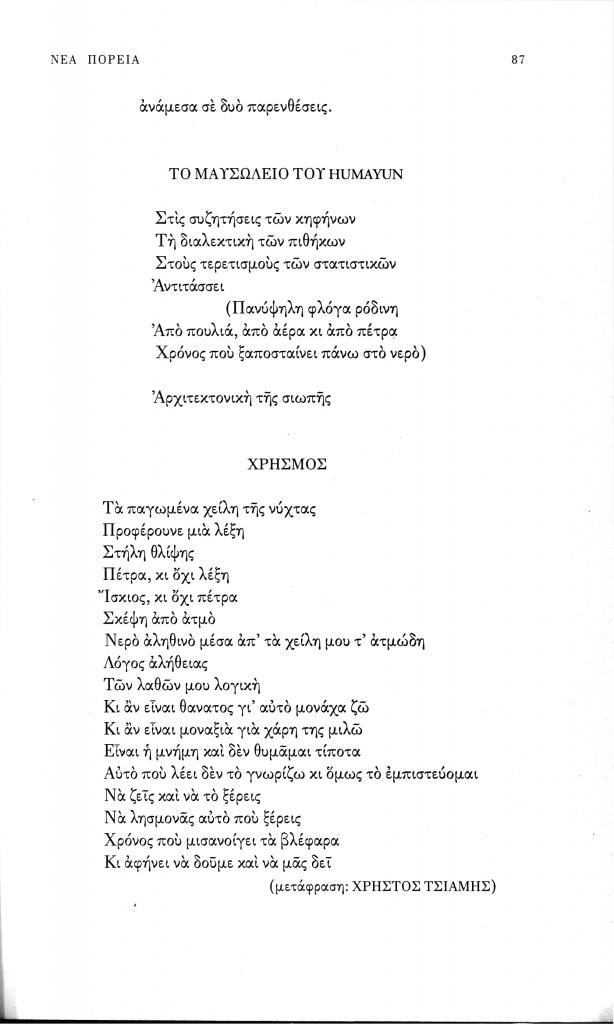 ΝΕΑ ΠΟΡΕΙΑ 87
ἀνάμεσα σὲ δυὸ παρενθέσεις.
ΤΟ ΜΑΥΣΩΛΕΙΟ ΤΟΥ HUMAYUN
Στὶς συζητήσεις τῶν κηφήνων
Τὴ διαλεκτικὴ τῶν πιθήκων
Στοὺς τερετισμοὺς τῶν στατιστικῶν
Ἀντιτάσσει
(Πανύψηλη φλόγα ρόδινη
Ἀπὸ πουλιά, ἀπὸ ἀέρα κι ἀπὸ πέτρα
Χρόνος ποὺ ξαποσταίνει πάνω στὸ νερὸ)
Ἀρχιτεκτονικὴ τῆς σιωπῆς
ΧΡΗΣΜΟΣ
Τὰ παγωμένα χείλη τῆς νύχτας
Προφέρουνε μιὰ λέξη
Στήλη θλίψης
Πέτρα, κι ὄχι λέξη
Ἴσκιος, κι ὄχι πέτρα
Σκέψη ἀπὸ ἀτμὸ
Νερὸ ἀληθινὸ μέσα ἀπ' τὰ χείλη μου τ' ἀτμώδη
Λόγος ἀλήθειας
Τῶν λαθῶν μου λογικὴ
Κι ἂν εἶναι θανατος γι' αὐτὸ μονάχα ζῶ
Κι ἂν εἶναι μοναξιὰ γιὰ χάρη της μιλῶ
Εἶναι ἡ μνήμη καὶ δὲν θυμᾶμαι τίποτα
Αὐτὸ ποὺ λέει δὲν τὸ γνωρίζω κι ὅμως τὸ ἐμπιστεύομαι
Νὰ ζεῖς καὶ νὰ τὸ ξέρεις
Νὰ λησμονᾶς αὐτὸ ποὺ ξέρεις
Χρόνος ποὺ μισανοίγει τὰ βλέφαρα
Κι ἀφήνει νὰ δοῦμε καὶ νὰ μᾶς δεῖ
(μετάφραση: ΧΡΗΣΤΟΣ ΤΣΙΑΜΗΣ)